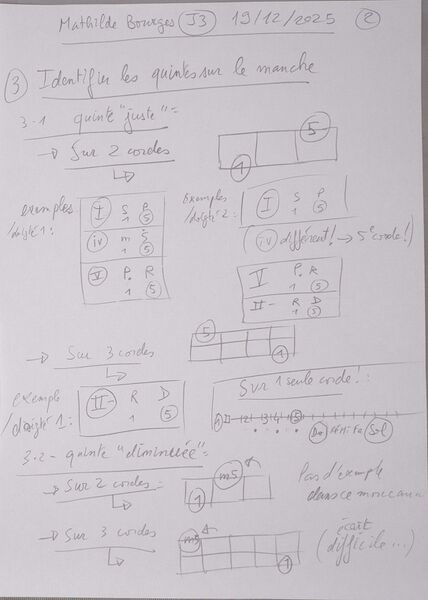 Mathilde Bourges J3 19/12/2025 2
3 Identifier les quintes sur le manche
3-1 quinte "juste" =
→ Sur 2 cordes
5
1
exemples
/doigté 1 :
I S P
1 5
iv m S
1 5
V P. R
1 5
exemples
/doigté 2 :
I S P
1 5
(iv différent! → 5e corde!)
V P. R
1 5
II- R D
1 5
→ Sur 3 cordes
5
1
exemple
/doigté 1 :
II- R D
1 5
Sur 1 seule corde! :
Do Ré Mi Fa Sol
3-2- quinte "diminuée" =
→ Sur 2 cordes =
m5
1
Pas d'exemple
dans ce morceau
→ Sur 3 cordes
m5
1
(écart
difficile...)